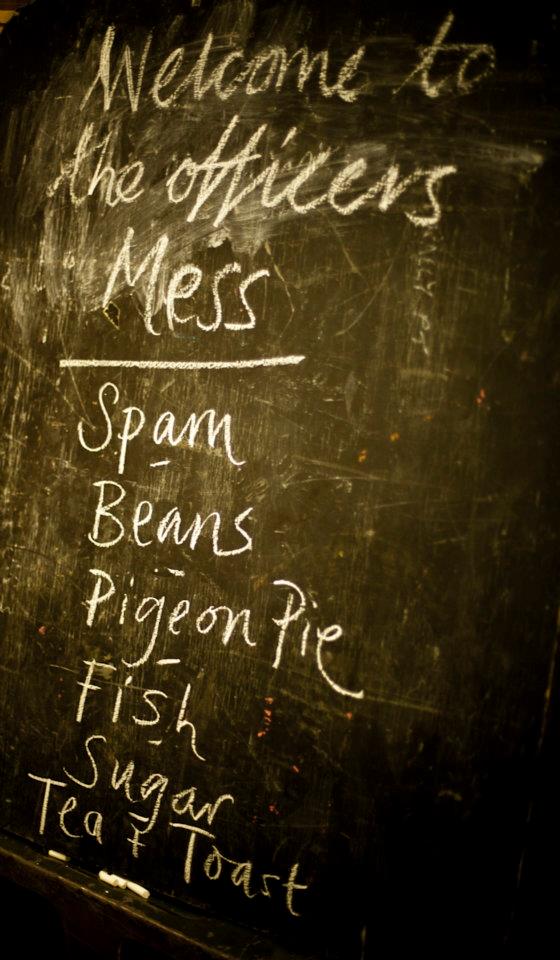 Welcome to
the officers
Mess
Spam
-
Beans
-
Pigeon Pie
-
Fish
-
Sugar
-
Tea & Toast